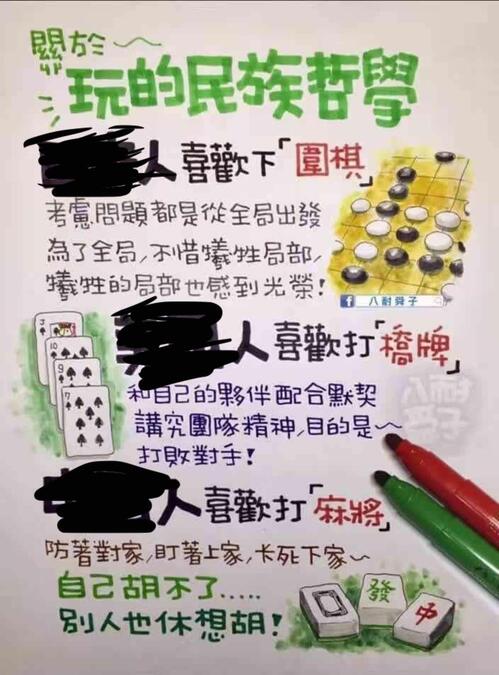 關於~
玩的民族哲學
人喜歡下「圍棋」
考慮問題都是從全局出發
為了全局,不惜犧牲局部,
犧牲的局部也感到光榮!
八耐舜子
人喜歡打「橋牌」
和自己的夥伴配合默契
講究團隊精神,目的是~
打敗對手!
J
10
9
7
八耐
舜子
人喜歡打「麻將」
防著對家,盯著上家,卡死下家~
自己胡不了.....
別人也休想胡!
發
中